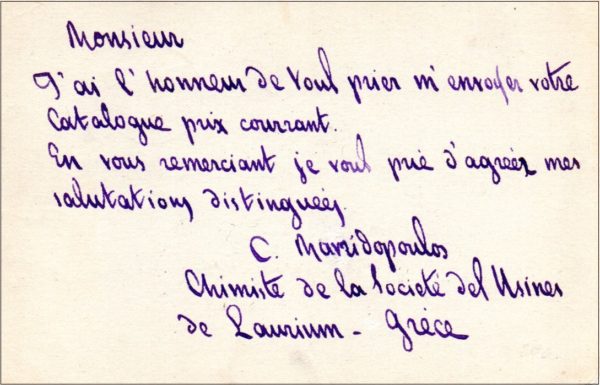 Monsieur
J'ai l'honneur de vous prier m'envoyer votre
Catalogue prix courrant.
En vous remerciant je vous prie d'agréer mes
salutations distinguées.
C.
Chimiste de la Societé des Usines
de Laurium - Grèce